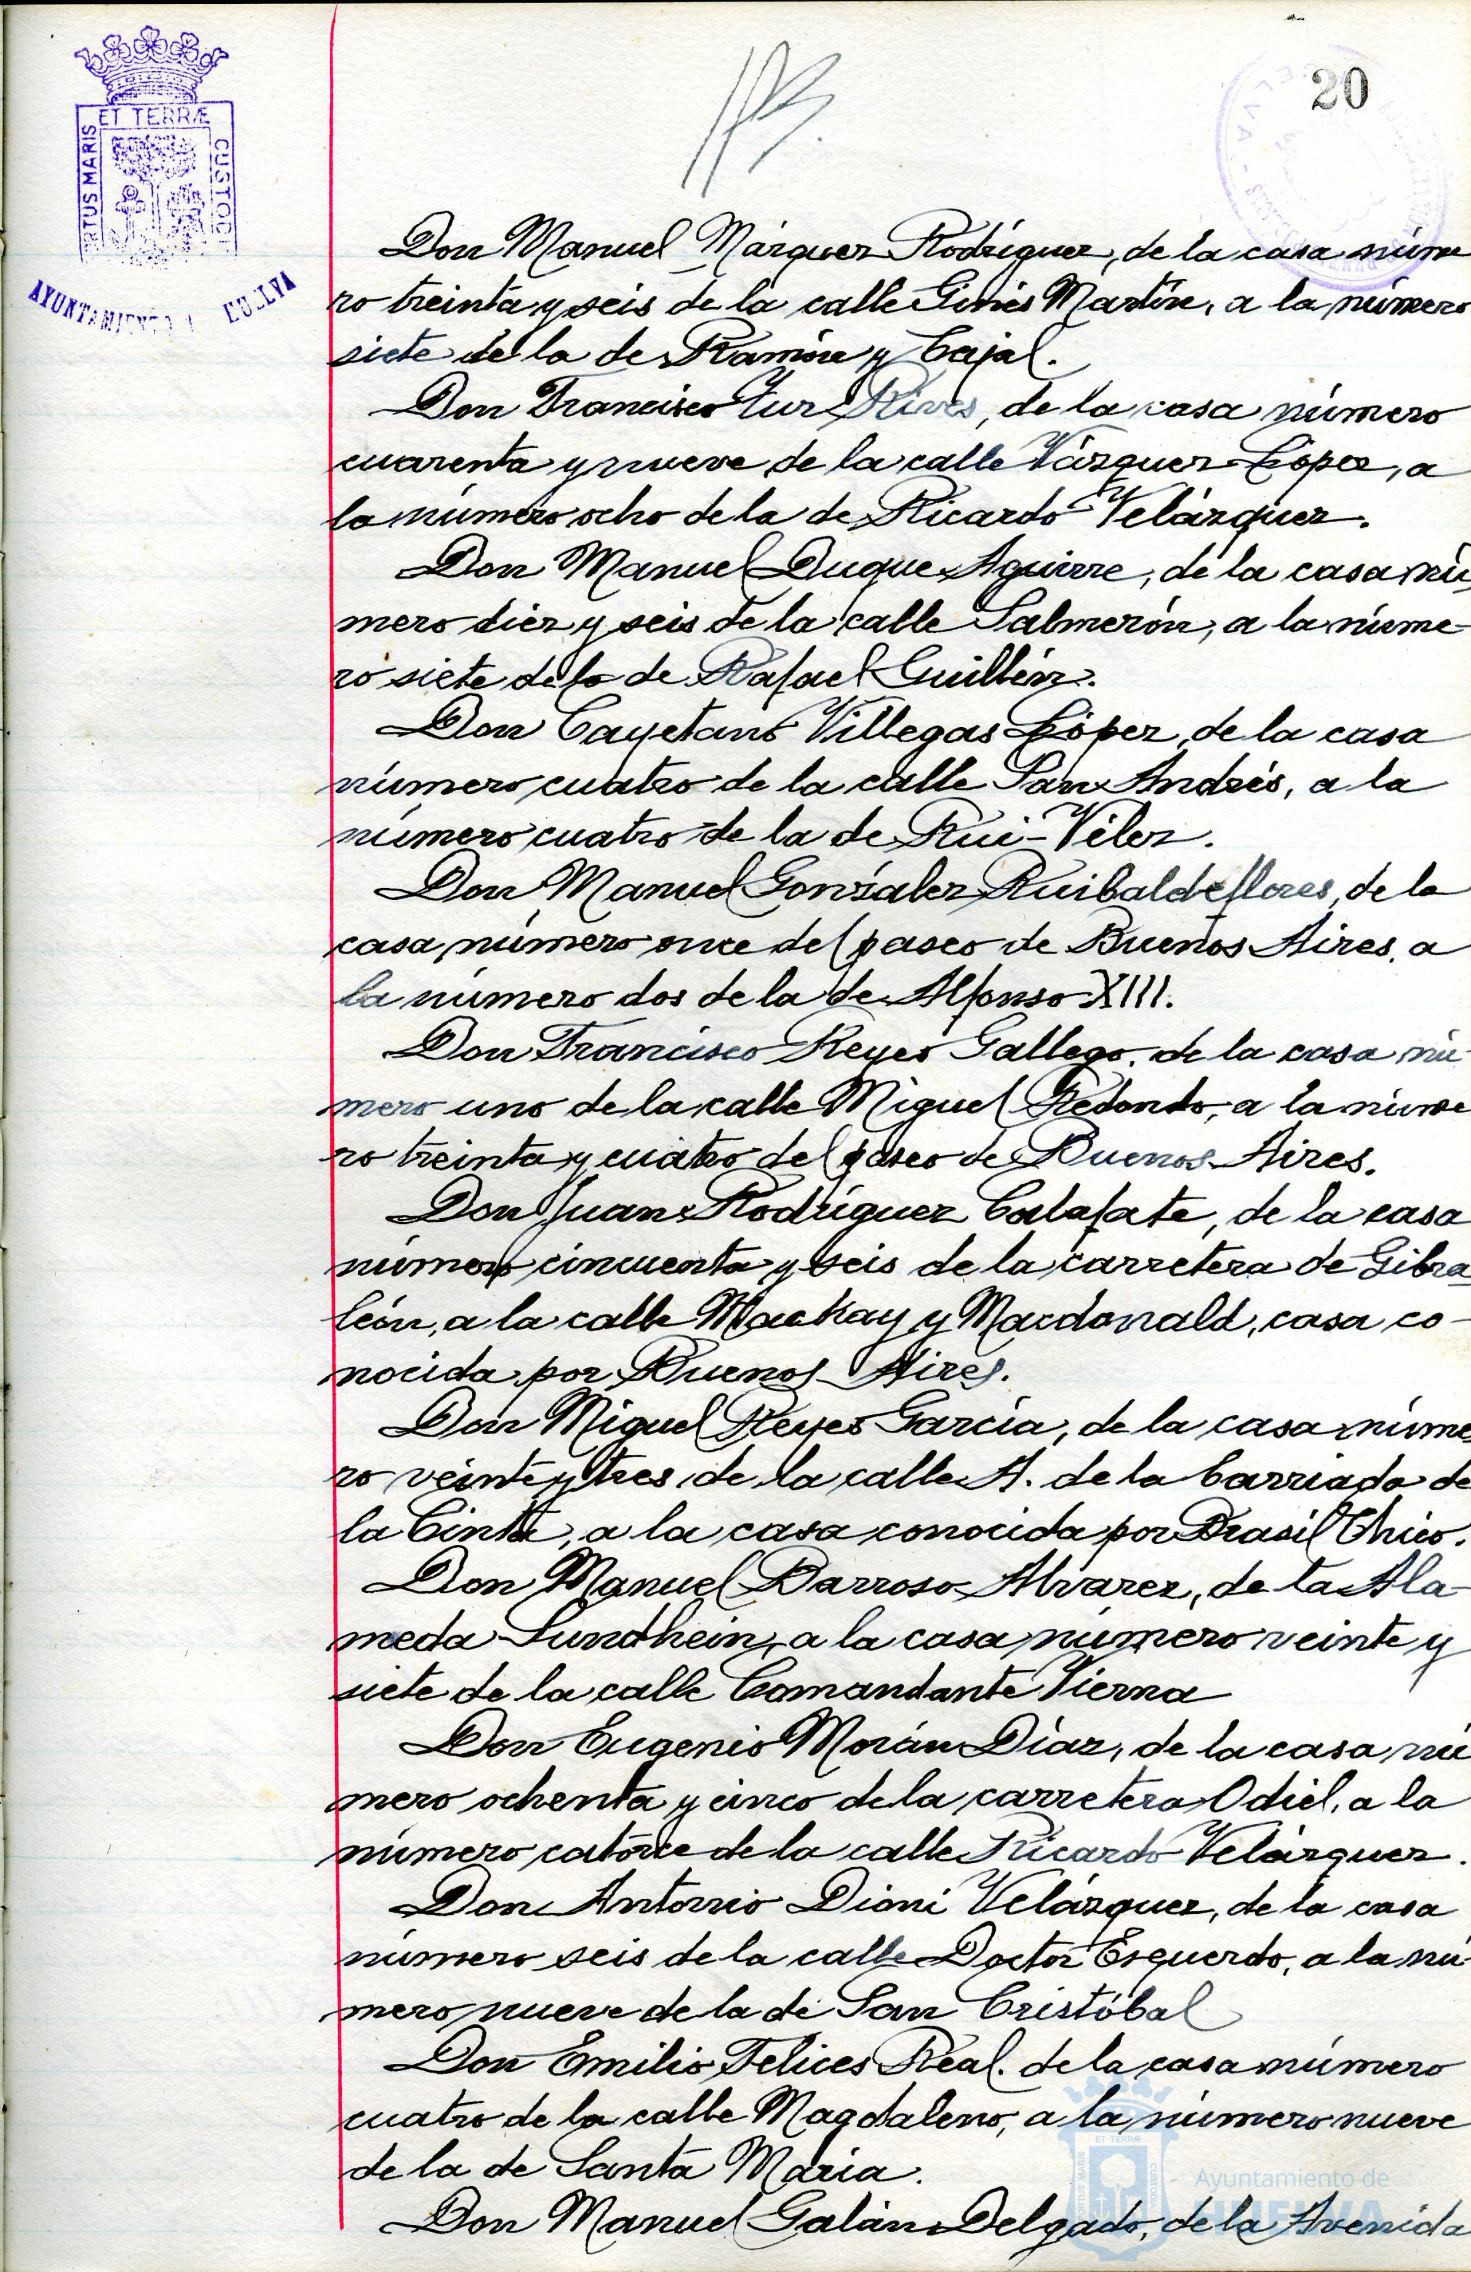 20
ET TERRÆ
RTUS MARIS
CUSTODI
AYUNTAMIENTO
HUELVA
Don Manuel Márquez Rodríguez, de la casa núme
ro treinta y seis de la calle Ginés Martín, a la número
siete de la de Ramón y Cajal.
Don Francisco Rives, de la casa número
cuarenta y nueve de la calle Vázquez López, a
la número ocho de la de Ricardo Velázquez.
Don Manuel Duque Aguirre, de la casa nú-
mero diez y seis de la calle Salmerón, a la núme-
ro siete de la de Rafael Guillén.
Don Cayetano Villegas López, de la casa
número cuatro de la calle San Andrés, a la
número cuatro de la de Rui-Vélez.
Don Manuel González Ruibaldeflores, de la
casa número once del paseo de Buenos Aires, a
la número dos de la de Alfonso XIII.
Don Francisco Reyes Gallego, de la casa nú-
mero uno de la calle Miguel Redondo, a la núme
ro treinta y cuatro del paseo de Buenos Aires.
Don Juan Rodríguez Calafate, de la casa
número cincuenta y seis de la carretera de Gibra
león, a la calle Mackay y Macdonald, casa co-
nocida por Buenos Aires.
Don Miguel Reyes García, de la casa núme
ro veinte y tres de la calle A. de la barriada de
la Cinta, a la casa conocida por Brasil Chico.
Don Manuel Barroso Alvarez, de la Ala-
meda Sundhein, a la casa número veinte y
siete de la calle Comandante Vierna
Don Eugenio Morán Díaz, de la casa nú
mero ochenta y cinco de la carretera Odiel, a la
número catorce de la calle Ricardo Velázquez.
Don Antonio Dioni Velázquez, de la casa
número seis de la calle Doctor Esquerdo, a la nú-
mero nueve de la de San Cristóbal
Don Emilio Felices Real. de la casa número
cuatro de la calle Magdalena, a la número nueve
de la de Santa María.
Don Manuel Galán Delgado, de la Avenida
Ayuntamiento de
HUELVA